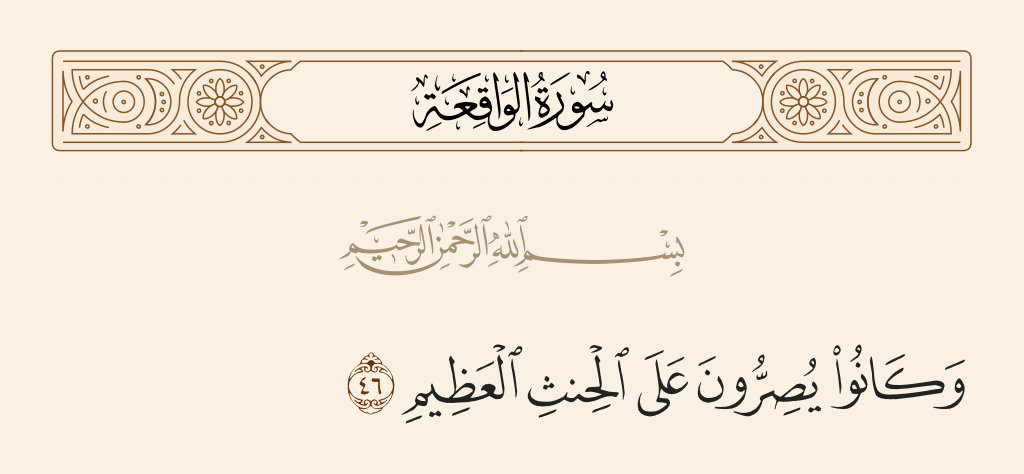 سُورَةُ الوَاقِعَةِ
بِسْمِ ٱللَّهِ ٱلرَّحْمَٰنِ ٱلرَّحِيمِ
وَكَانُوا۟ يُصِرُّونَ عَلَى ٱلْحِنثِ ٱلْعَظِيمِ ٤٦